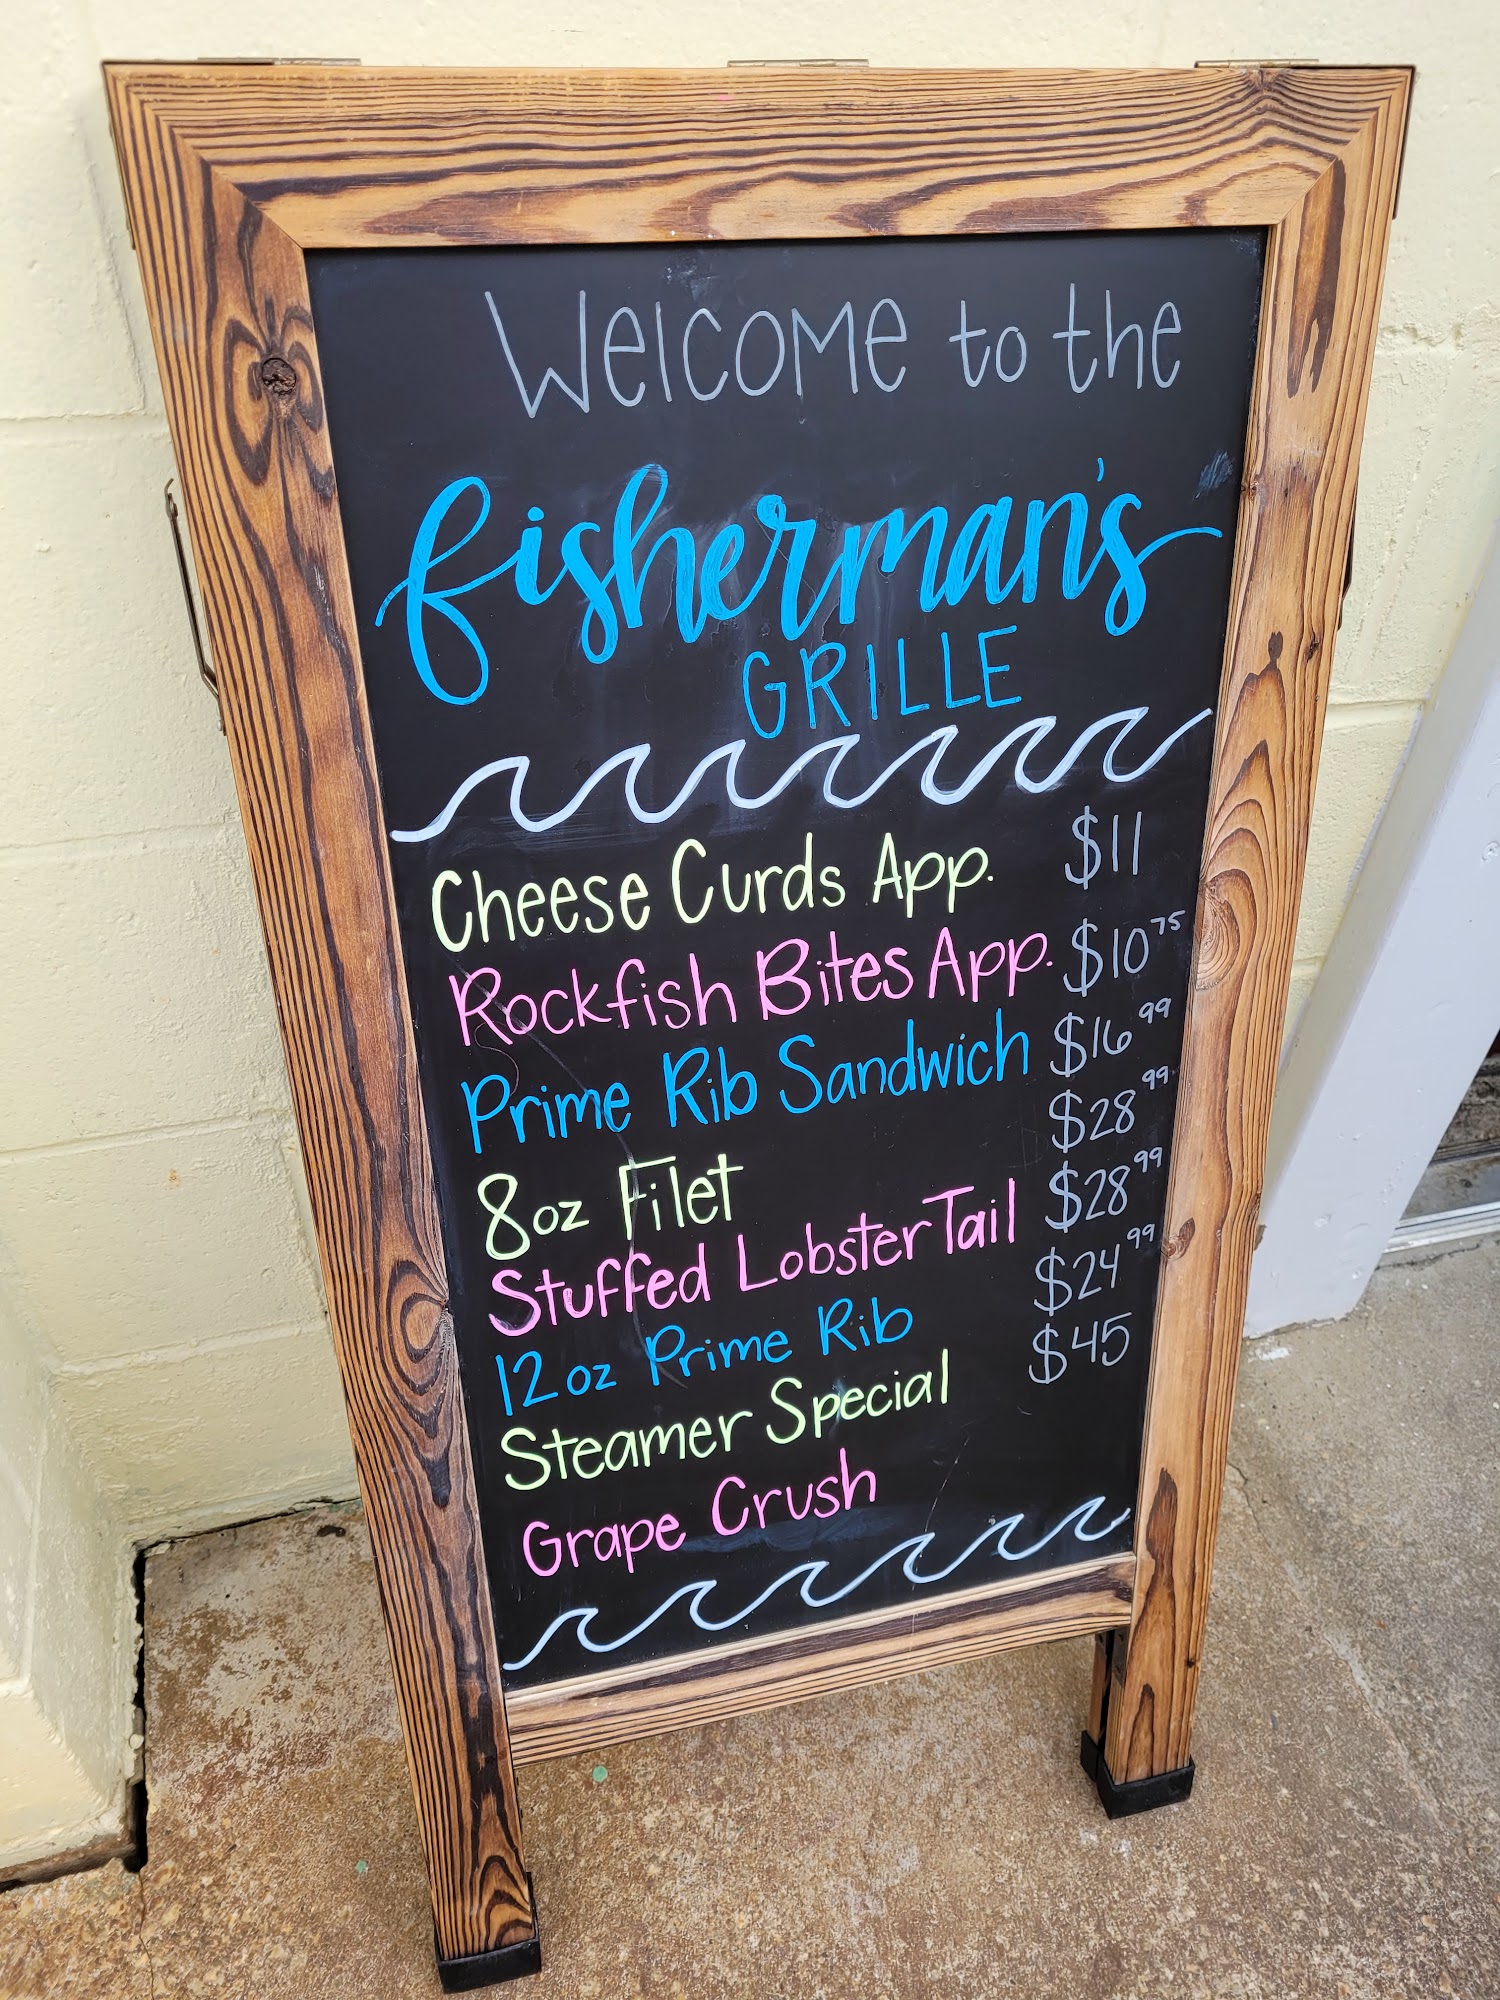 Welcome to the
fisherman's
GRILLE
Cheese Curds App. $11
Rockfish Bites App. $10 75
Prime Rib Sandwich $16 99
8oz Filet $28 99
Stuffed Lobster Tail $28 99
12oz Prime Rib $24 99
Steamer Special $45
Grape Crush